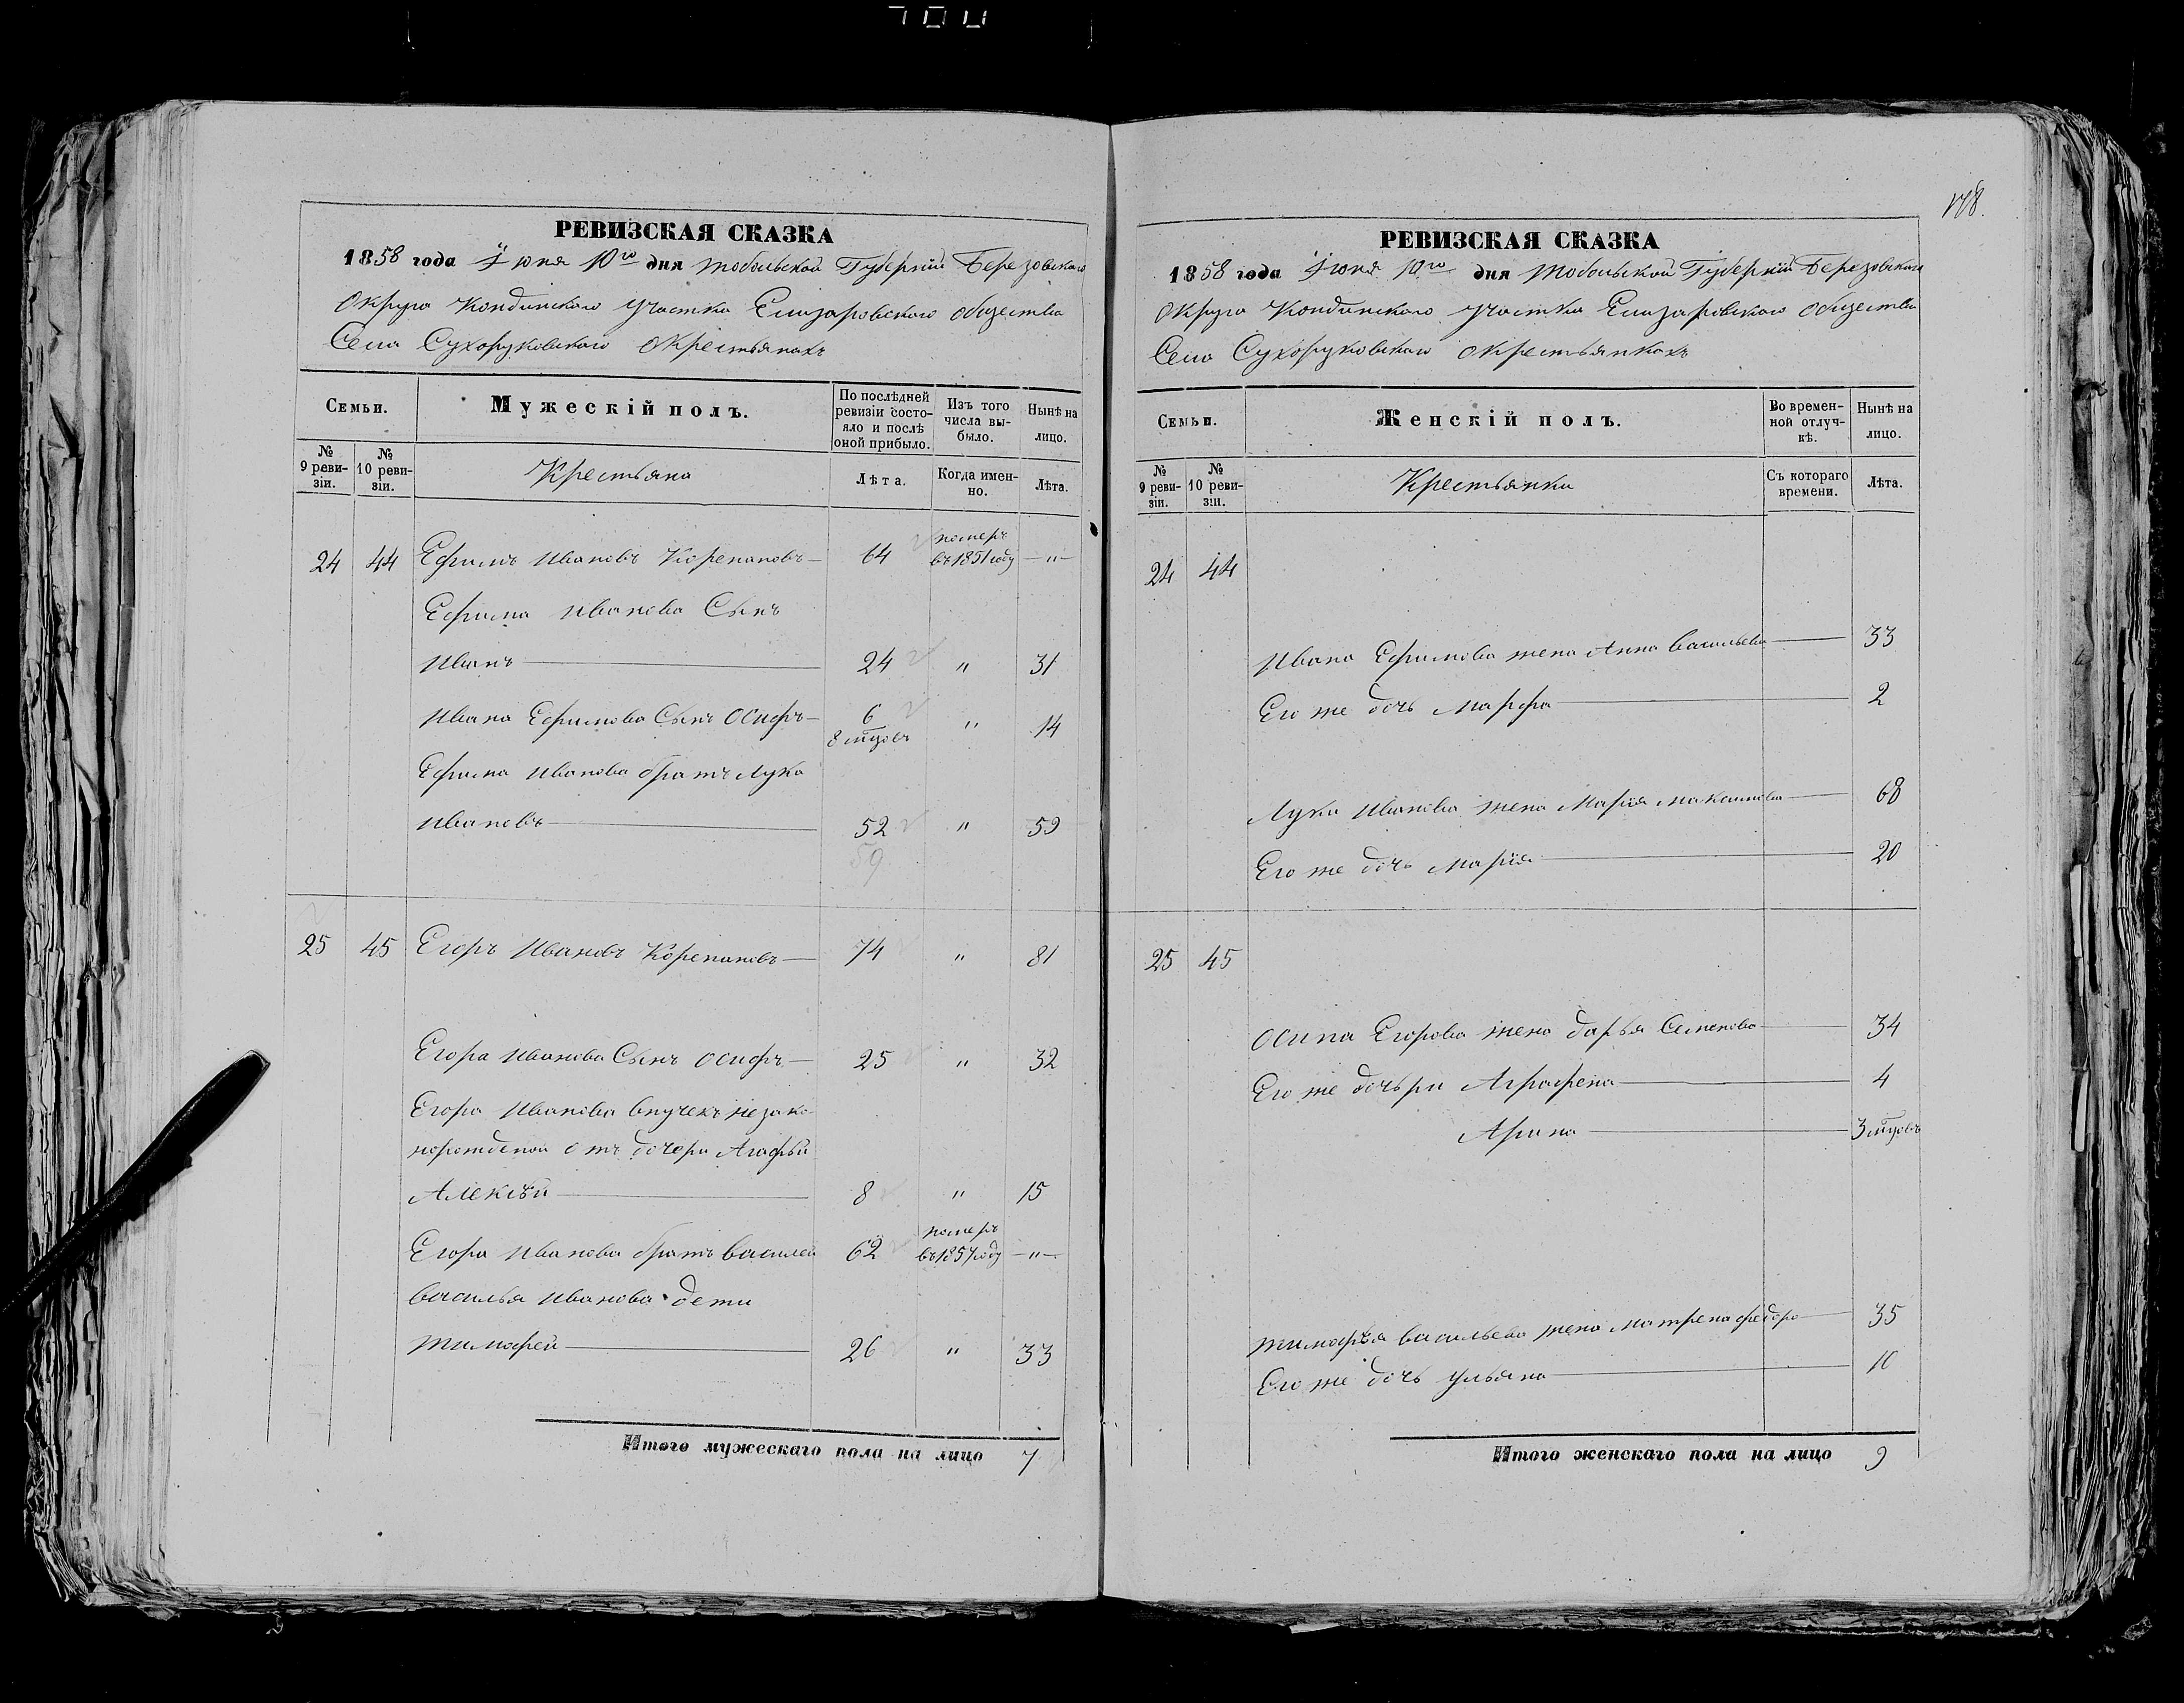 700
РЕВИЗСКАЯ СКАЗКА
1858 года Іюня 10го дня Тобольской Губерніи Березовскаго
Округа Кондинскаго Участка Елизаровскаго общества
Села Сухоруковскаго о Крестьянахъ
Семьи.
Мужескій полъ.
По послѣдней ревизіи состояло и послѣ оной прибыло.
Изъ того числа выбыло.
Нынѣ на лицо.
№ 9 ревизіи.
№ 10 ревизіи.
Крестьяна
Лѣта.
Когда именно.
Лѣта.
24 44 Ефимъ Ивановъ Корепановъ 64 померъ въ 1851 году — " —
Ефима Иванова Сынъ
Иванъ 24 " 31
Ивана Ефимова Сынъ Осифъ 6 8 мцовъ " 14
Ефима Иванова братъ Лука
Ивановъ 52 " 59
59
25 45 Егоръ Ивановъ Корепановъ 74 " 81
Егора Иванова Сынъ Осифъ 25 " 32
Егора Иванова внучекъ незако
норожденой отъ дочери Агафьи
Алексѣй 8 " 15
Егора Иванова братъ Василей 62 померъ въ 1857 году — " —
Василья Иванова дети
Тимофей 26 " 33
Итого мужескаго пола на лицо 7
178.
РЕВИЗСКАЯ СКАЗКА
1858 года Іюня 10го дня Тобольской Губерніи Березовскаго
Округа Кондинскаго Участка Елизаровскаго общества
Села Сухоруковскаго о Крестьянкахъ
Семьи.
Женскій полъ.
Во временной отлучкѣ.
Нынѣ на лицо.
№ 9 ревизіи.
№ 10 ревизіи.
Крестьянки
Съ котораго времени.
Лѣта.
24 44
Ивана Ефимова жена Анна Васильева 33
Его же дочь Марфа 2
Луки Иванова жена Марія Макимова 68
Его же дочь Марія 20
25 45
Осипа Егорова жена Дарья Семенова 34
Его же дочьри Аграфена 4
Арина 3 мцовъ
Тимофѣя Васильева жена Матрена Федоро 35
Его же дочь Ульяна 10
Итого женскаго пола на лицо 9